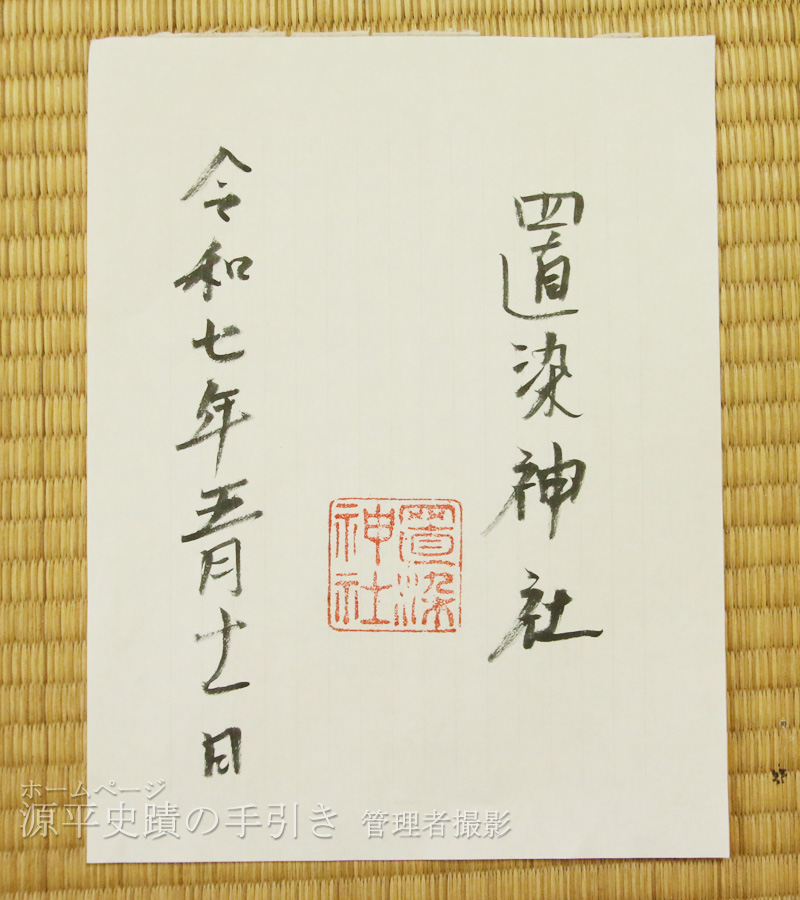 置染神社
置染神社
令和七年五月十一日
ホームページ
源平史蹟の手引き 管理者撮影